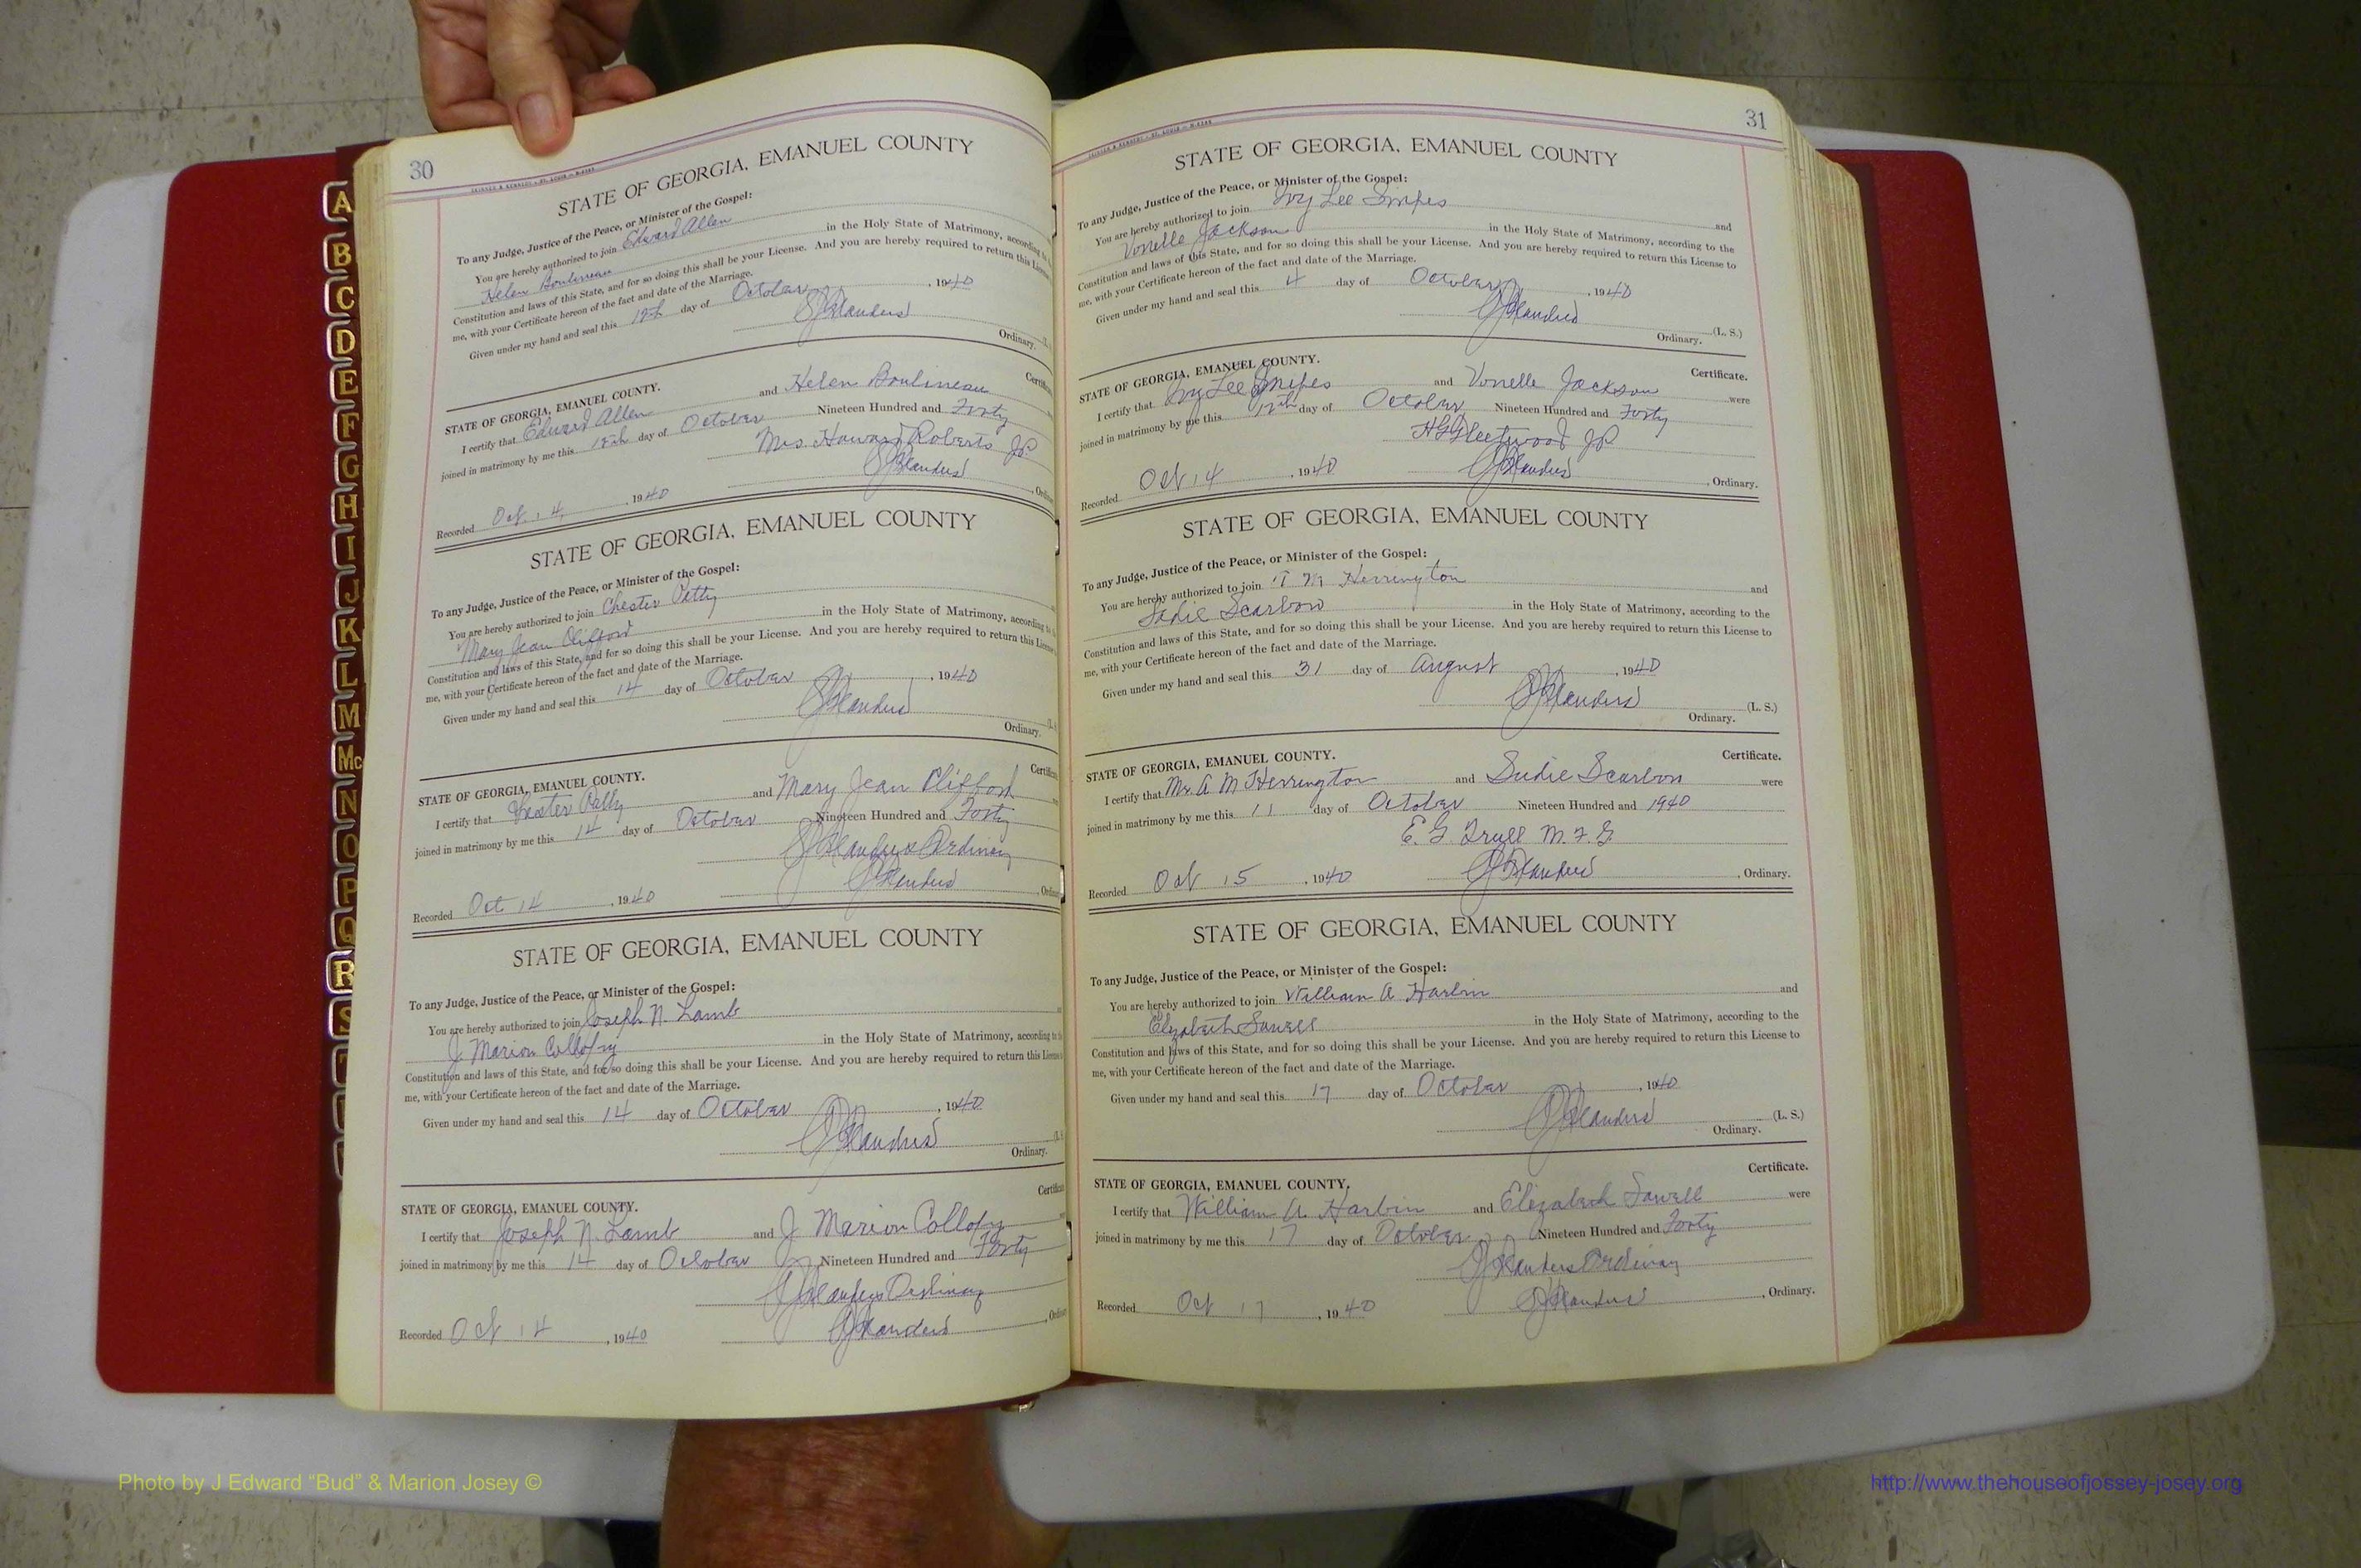 30
STATE OF GEORGIA, EMANUEL COUNTY
To any Judge, Justice of the Peace, or Minister of the Gospel:
You are hereby authorized to join Edward Allen
Helen Boulineau in the Holy State of Matrimony, according to
Constitution and laws of this State, and for so doing this shall be your License. And you are hereby required to return this License
me, with your Certificate hereon of the fact and date of the Marriage.
Given under my hand and seal this 12th day of October, 1940
Flanders
Ordinary.
STATE OF GEORGIA, EMANUEL COUNTY.
I certify that Edward Allen and Helen Boulineau
joined in matrimony by me this 12th day of October Nineteen Hundred and Forty
Mrs. Howard Roberts JP.
Flanders
Recorded Oct. 14, 1940
STATE OF GEORGIA, EMANUEL COUNTY
To any Judge, Justice of the Peace, or Minister of the Gospel:
You are hereby authorized to join Chester Patty
Mary Jean Clifford in the Holy State of Matrimony, according to
Constitution and laws of this State, and for so doing this shall be your License. And you are hereby required to return this License
me, with your Certificate hereon of the fact and date of the Marriage.
Given under my hand and seal this 14 day of October, 1940
Flanders
Ordinary.
STATE OF GEORGIA, EMANUEL COUNTY.
I certify that and Mary Jean Clifford
joined in matrimony by me this 14 day of October Nineteen Hundred and Forty
Flanders Ordinary
Flanders
Recorded Oct 14, 1940
STATE OF GEORGIA, EMANUEL COUNTY
To any Judge, Justice of the Peace, or Minister of the Gospel:
You are hereby authorized to join Joseph N. Lamb
J. Marion in the Holy State of Matrimony, according to
Constitution and laws of this State, and for so doing this shall be your License. And you are hereby required to return this License
me, with your Certificate hereon of the fact and date of the Marriage.
Given under my hand and seal this 14 day of October, 1940
Flanders
Ordinary.
STATE OF GEORGIA, EMANUEL COUNTY.
I certify that Joseph N. Lamb and J Marion
joined in matrimony by me this 14 day of October Nineteen Hundred and Forty
Flanders Ordinary
Flanders
Recorded Oct 14, 1940
31
STATE OF GEORGIA, EMANUEL COUNTY
To any Judge, Justice of the Peace, or Minister of the Gospel:
You are hereby authorized to join Ivy Lee Snipes and
Vonelle Jackson in the Holy State of Matrimony, according to the
Constitution and laws of this State, and for so doing this shall be your License. And you are hereby required to return this License to
me, with your Certificate hereon of the fact and date of the Marriage.
Given under my hand and seal this 4 day of October, 1940
Flanders (L. S.)
Ordinary.
STATE OF GEORGIA, EMANUEL COUNTY. Certificate.
I certify that Ivy Lee Snipes and Vonelle Jackson were
joined in matrimony by me this 12th day of October Nineteen Hundred and Forty
H G Fleetwood JP
Recorded Oct 14, 1940 Flanders, Ordinary.
STATE OF GEORGIA, EMANUEL COUNTY
To any Judge, Justice of the Peace, or Minister of the Gospel:
You are hereby authorized to join M Herrington and
Sadie Scarboro in the Holy State of Matrimony, according to the
Constitution and laws of this State, and for so doing this shall be your License. And you are hereby required to return this License to
me, with your Certificate hereon of the fact and date of the Marriage.
Given under my hand and seal this 31 day of August, 1940
Flanders (L. S.)
Ordinary.
STATE OF GEORGIA, EMANUEL COUNTY. Certificate.
I certify that Mr. A M Herrington and Sudie Scarboro were
joined in matrimony by me this 11 day of October Nineteen Hundred and 1940
E. G. Trull M. F. G.
Recorded Oct 15, 1940 Flanders, Ordinary.
STATE OF GEORGIA, EMANUEL COUNTY
To any Judge, Justice of the Peace, or Minister of the Gospel:
You are hereby authorized to join William A Harbin and
Elizabeth Sowell in the Holy State of Matrimony, according to the
Constitution and laws of this State, and for so doing this shall be your License. And you are hereby required to return this License to
me, with your Certificate hereon of the fact and date of the Marriage.
Given under my hand and seal this 17 day of October, 1940
Flanders (L. S.)
Ordinary.
STATE OF GEORGIA, EMANUEL COUNTY. Certificate.
I certify that William A Harbin and Elizabeth Sowell were
joined in matrimony by me this 17 day of October Nineteen Hundred and Forty
Flanders Ordinary
Recorded Oct 17, 1940 Flanders, Ordinary.
A
B
C
D
E
F
G
H
I
J
K
L
M
Mc
N
O
P
Q
R
S
Photo by J Edward “Bud” & Marion Josey ©
http://www.thehouseofjossey-josey.org